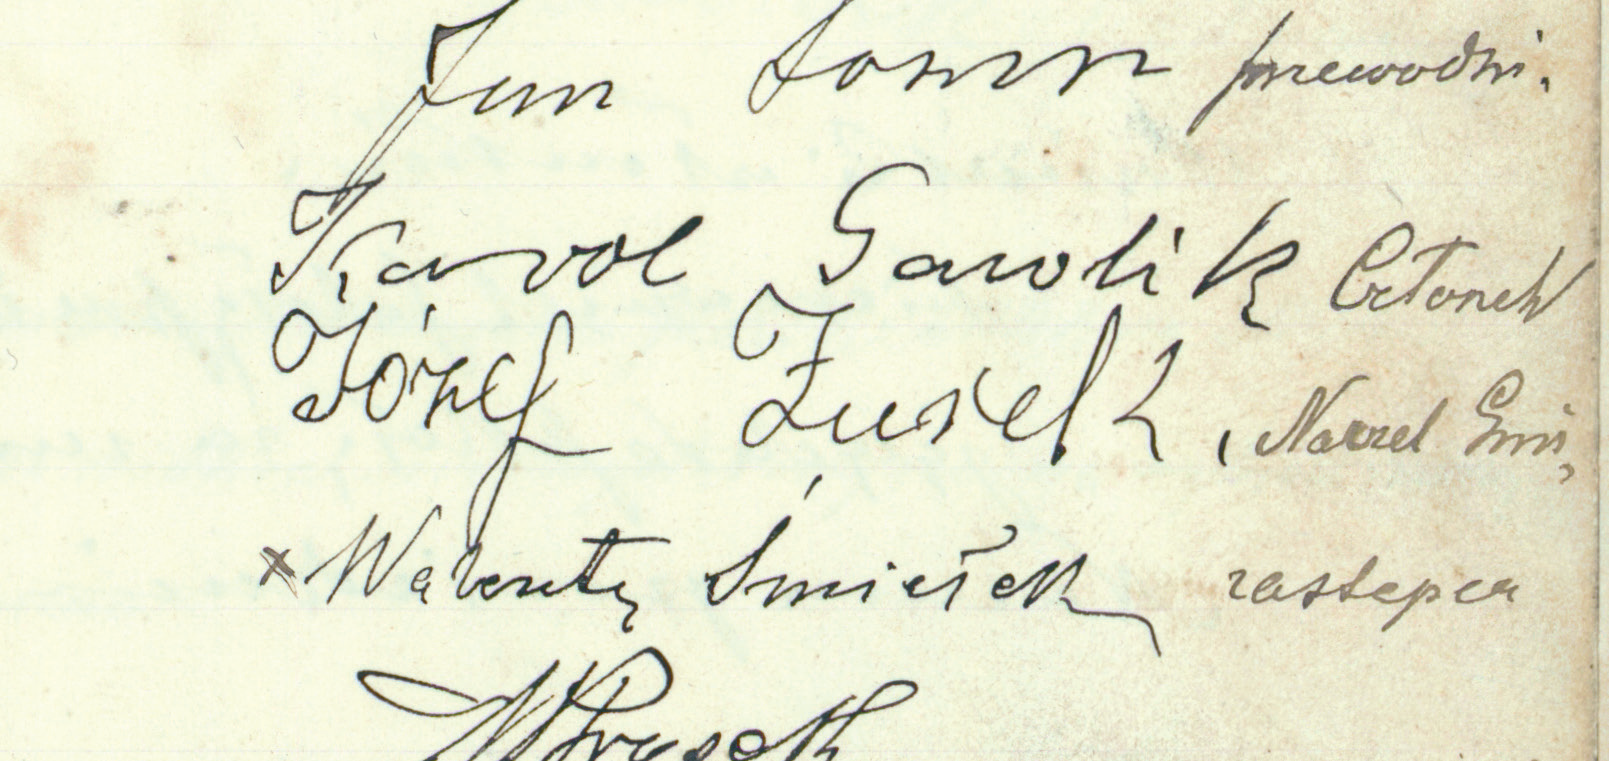 Jan Sowa przewodni.
Karol Gawlik Członek
Józef Zusek, Naczel Gmi,
× Walenty Śmiełek zastepca